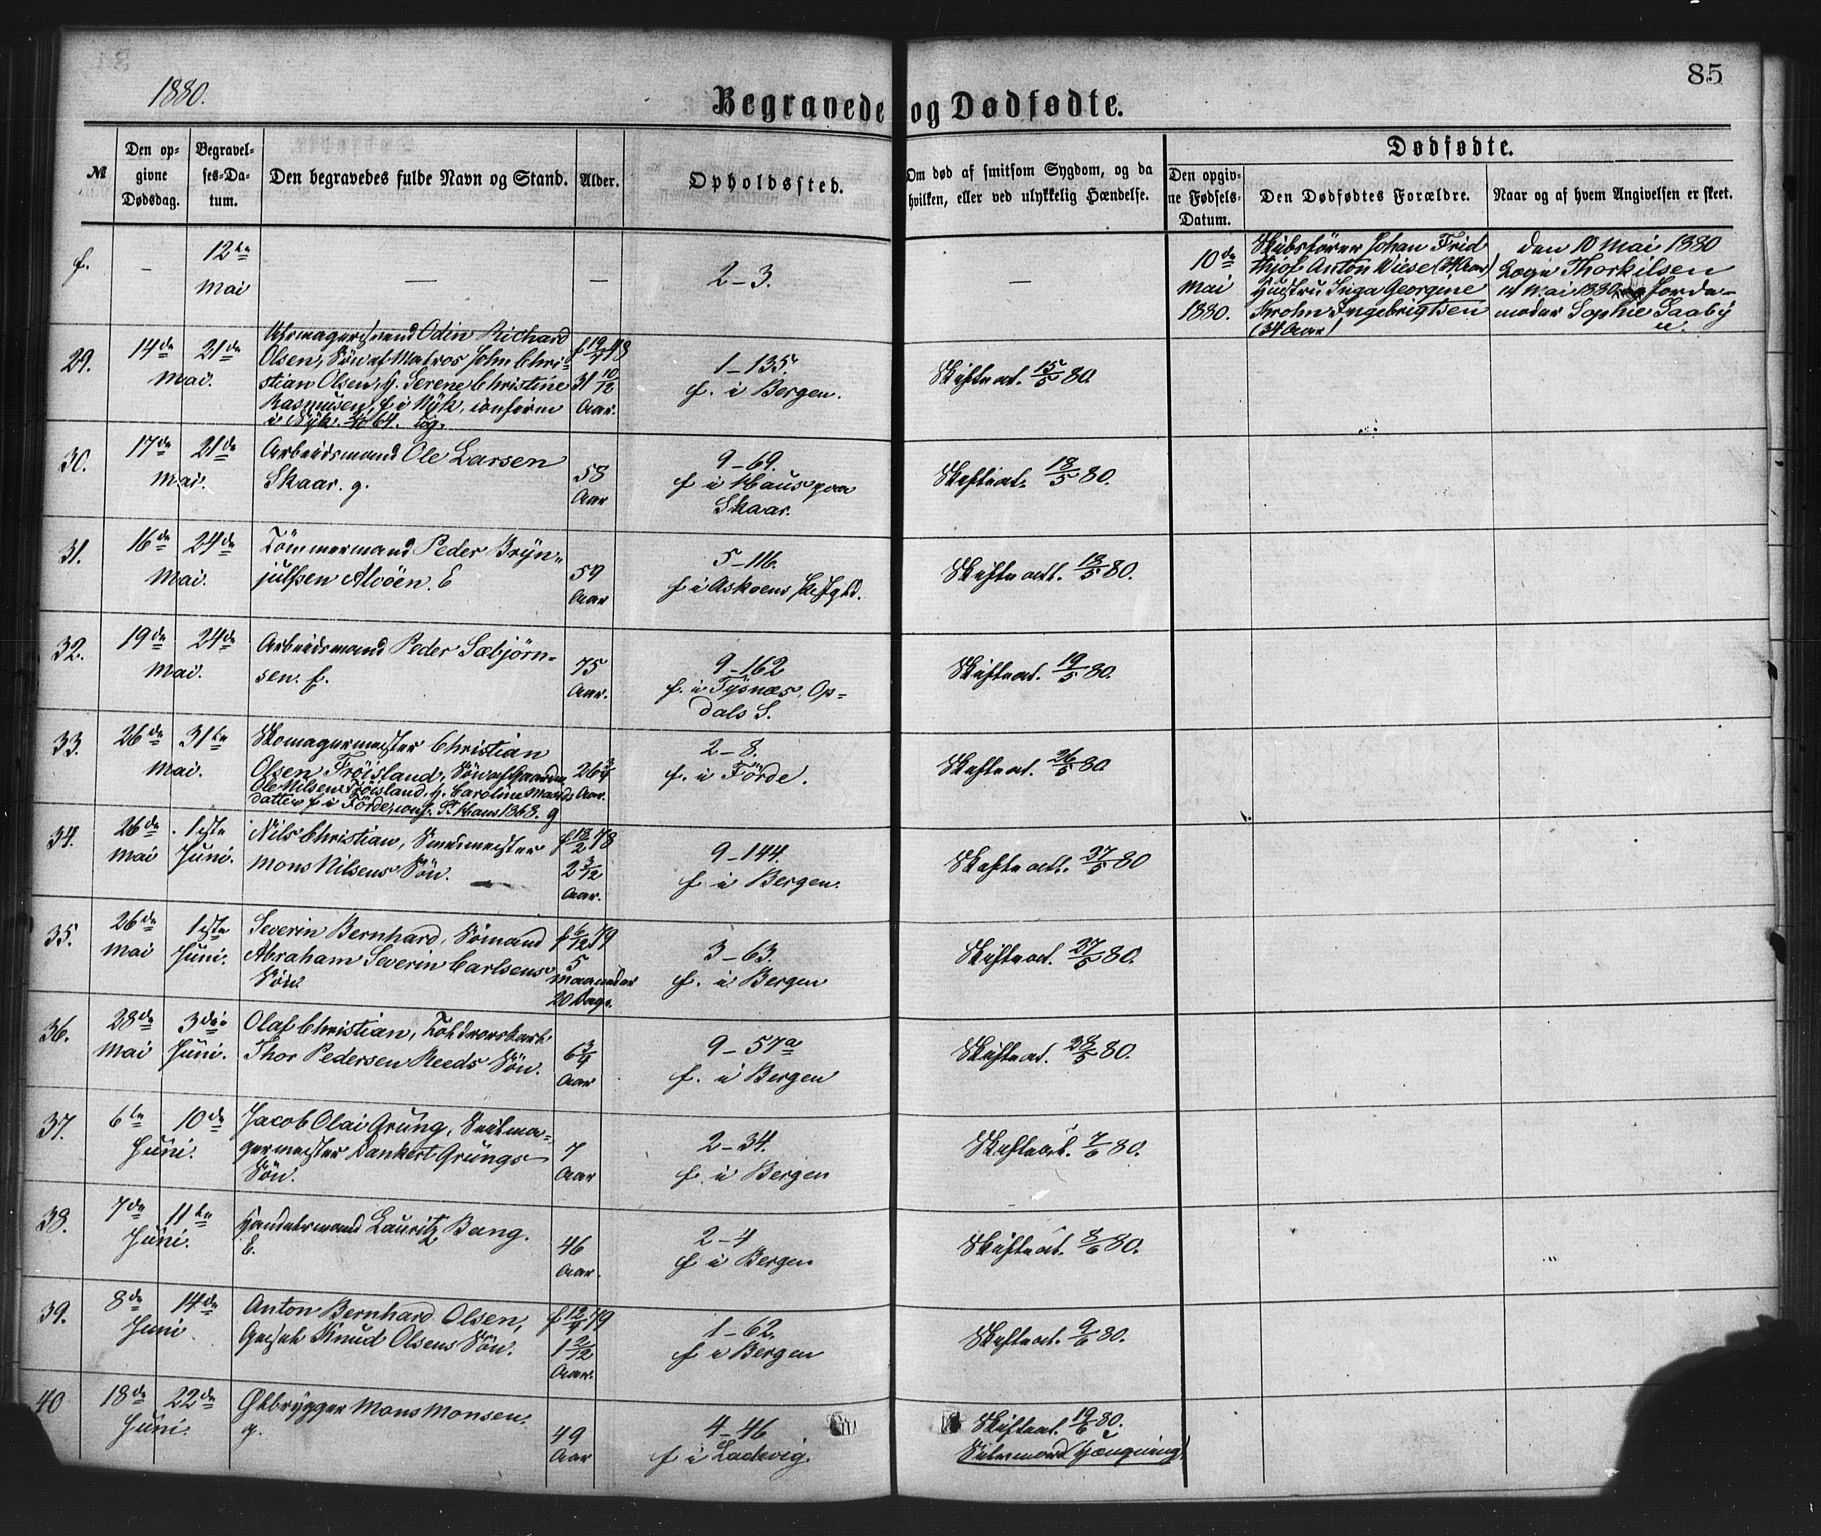 1880.
85
Begravede og Dødfødte.
№
Den opgivne Dødsdag.
Begravelses-Datum.
Den begravedes fulde Navn og Stand.
Alder.
Opholdssted.
Om død af smitsom Sygdom, og da hvilken, eller ved ulykkelig Hændelse.
Dødfødte.
Den opgivne Fødsels-Datum.
Den Dødfødtes Forældre.
Naar og af hvem Angivelsen er skeet.
f. — 12te Mai — — 2-3. —
10de Mai 1880.
Skibsfører Johan Frid
thjof Anton Wiese (34 Aar)
Hustru Inga Georgine
Krohn Ingebrigtsen
(34 Aar)
den 10 Mai 1880
Læge Thorkilsen
14 Mai 1880 Jorde-
moder Sophie Saaby
29. 14de 21de Mai.
Uhrmagersvend Odin Richard
Olsen, Søn af Matros John Chri-
stian Olsen, H. Serene Christine
Rasmusen, f. i Nÿk, confirm
i Nÿk. 64. Ug.
31 10/12 Aar.
1-135.
f. i Bergen.
Skifteat. 15/5 80.
30. 17de 21de Mai.
Arbeidsmand Ole Larsen
Skaar. g.
58 Aar
9-69.
f i Haus paa
Skaar.
Skifteat. 18/5 80.
31. 16de 24de Mai.
Tömmermand Peder Brÿn-
julfsen Alvöen. E
59 Aar
5-116.
f i Askoens Præstgd.
Skifteatt. 18/5 80.
32. 19de 24de Mai.
Arbeidsmand Peder Sæbjørn-
sen. f.
75 Aar.
9-162
f. i Tÿsnæs, Op-
dals S.
Skifteat. 19/5 80.
33. 26de 31te Mai.
Skomagermester Christian
Olsen Fröisland, Søn af Gaardm.
Ole Nilsen Fröisland, H. Caroline Mads
datter f i Förde, conf. St. Hans 1868. g
26 3/4 Aar.
2-8.
f. i Förde.
Skifteat. 26/5 80.
34. 26de Mai 1ste Juni.
Nils Christian, Smedmester
Mons Nilsens Søn.
f 18/2 78
2 3/12 Aar.
9-144.
f i Bergen.
Skifteatt. 27/5 80
35. 26de Mai 1ste Juni.
Severin Bernhard, Sømand
Abraham Severin Carlsens
Søn
f 6/12 79
5 Maaneder
20 Dage.
3-63.
f. i Bergen
Skifteat. 27/5 80.
36. 28de Mai 3die Juni.
Olaf Christian, Toldrorskarl
Thor Pedersen Reeds Søn.
6 3/4 Aar
9-57a
f. i Bergen
Skifteat. 28/5 80.
37. 6te 10de Juni.
Jacob Olai Grung, Seilma-
germester Dankert Grungs
Søn.
7 Aar
2-34.
f. i Bergen
Skifteat. 7/6 80.
38. 7de 11te Juni.
Handelsmand Lauritz Bang.
E.
46 Aar.
2-4
f i Bergen
Skifteat. 8/6 80.
39. 8de 14de Juni
Anton Bernhard Olsen,
Knud Olsens Søn.
f 12/4 79
1 2/12 Aar.
1-62.
f i Bergen
Skifteat. 9/6 80.
40 18de 22de Juni.
Ølbrygger Mons Monsen.
g.
49 Aar
4-46
f i Ladevig.
Skifteat. 19/6 80.
Selvmord (Hængning)